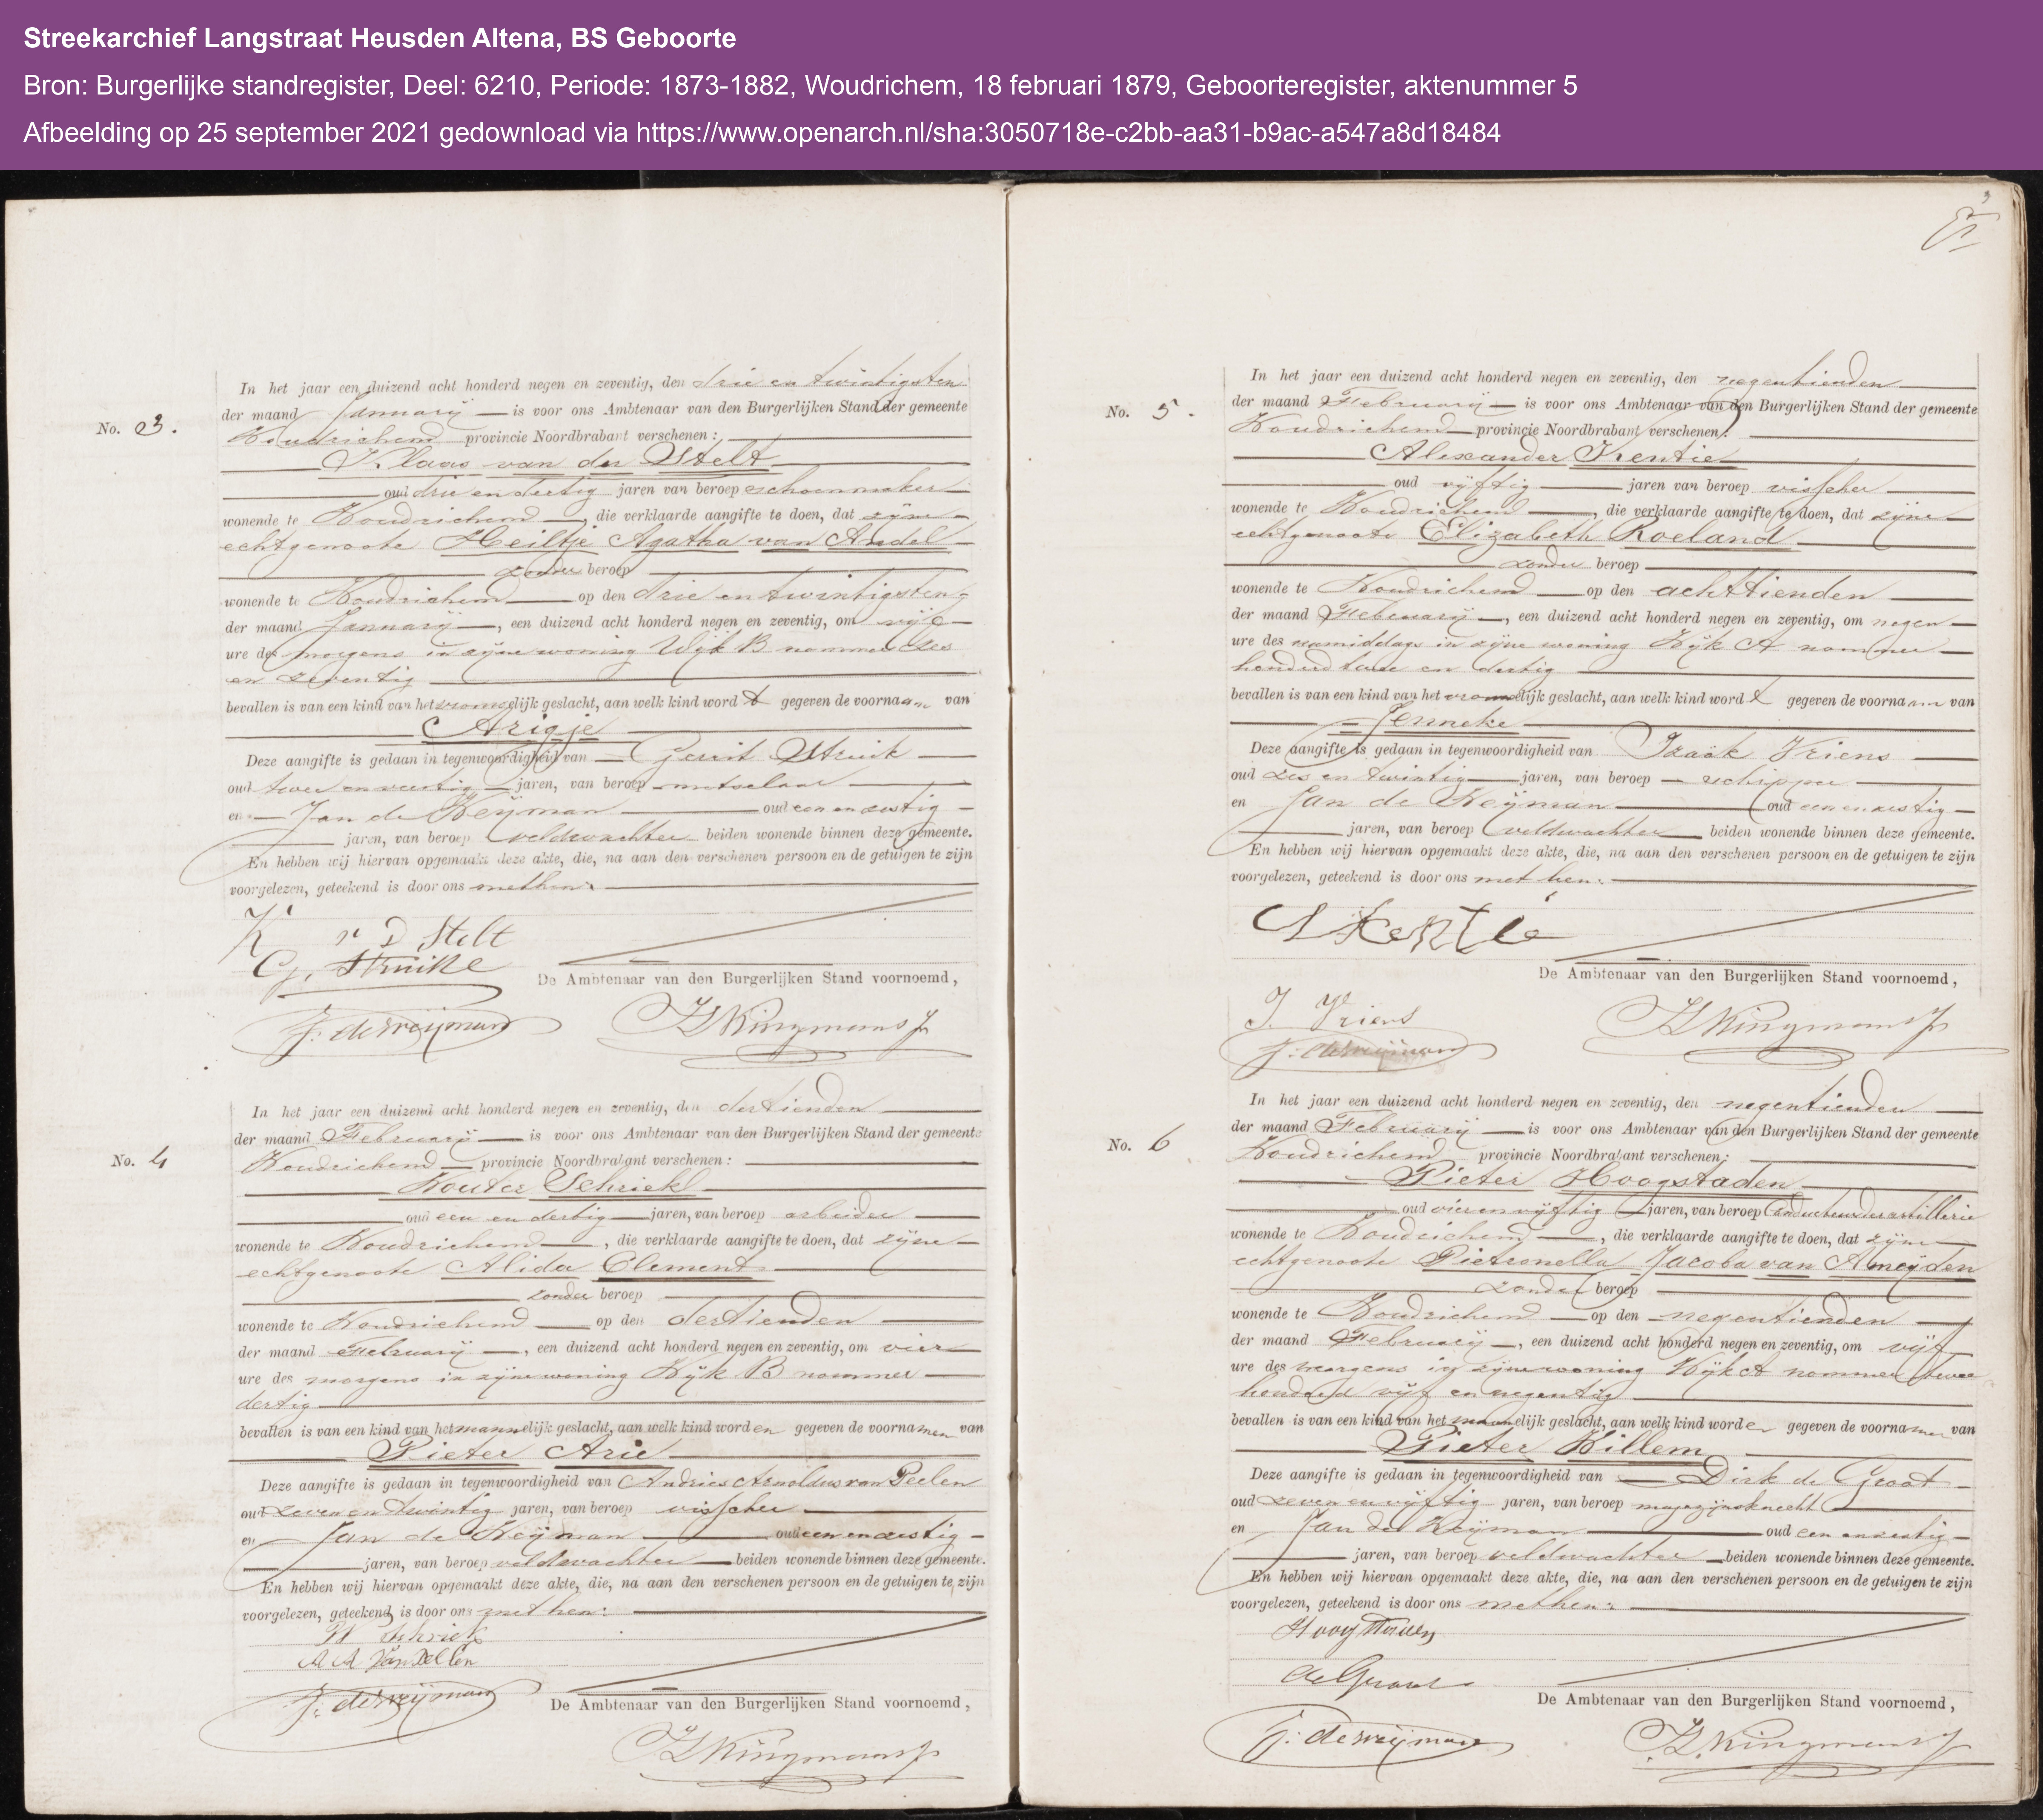 Streekarchief Langstraat Heusden Altena, BS Geboorte
Bron: Burgerlijke standregister, Deel: 6210, Periode: 1873-1882, Woudrichem, 18 februari 1879, Geboorteregister, aktenummer 5
Afbeelding op 25 september 2021 gedownload via https://www.openarch.nl/sha:3050718e-c2bb-aa31-b9ac-a547a8d18484
No. 3.
In het jaar een duizend acht honderd negen en zeventig, den drie en twintigsten
der maand Januarij is voor ons Ambtenaar van den Burgerlijken Stand der gemeente
Woudrichem provincie Noordbrabant verschenen:
Klaas van der Stelt
oud drie en dertig jaren van beroep schoenmaker
wonende te Woudrichem, die verklaarde aangifte te doen, dat zijne
echtgenoote Heiltje Agatha van Andel
zonder beroep
wonende te Woudrichem op den drie en twintigsten
der maand Januarij, een duizend acht honderd negen en zeventig, om vijf
ure des morgens in zijne woning Wijk B nommer zes
en zeventig
bevallen is van een kind van het vrouwelijk geslacht, aan welk kind wordt gegeven de voornaam van
Arigje
Deze aangifte is gedaan in tegenwoordigheid van Gerrit Struik
oud twee en veertig jaren, van beroep metselaar
en Jan de Weijman oud een en zestig
jaren, van beroep veldwachter beiden wonende binnen deze gemeente.
En hebben wij hiervan opgemaakt deze akte, die, na aan den verschenen persoon en de getuigen te zijn
voorgelezen, geteekend is door ons met hen.
K v D Stelt
G. Struike
De Ambtenaar van den Burgerlijken Stand voornoemd,
J. de Weijman
No. 4
In het jaar een duizend acht honderd negen en zeventig, den dertienden
der maand Februarij is voor ons Ambtenaar van den Burgerlijken Stand der gemeente
Woudrichem provincie Noordbrabant verschenen:
Wouter Schriek
oud een en dertig jaren, van beroep arbeider
wonende te Woudrichem, die verklaarde aangifte te doen, dat zijne
echtgenoote Alida Clement
zonder beroep
wonende te Woudrichem op den dertienden
der maand Februarij, een duizend acht honderd negen en zeventig, om vier
ure des morgens in zijne woning Wijk B nommer
dertig
bevallen is van een kind van het mannelijk geslacht, aan welk kind worden gegeven de voornamen van
Pieter Arie
Deze aangifte is gedaan in tegenwoordigheid van Andries Arnoldus van Peelen
oud zeven en twintig jaren, van beroep visscher
en Jan de Weijman oud een en zestig
jaren, van beroep veldwachter beiden wonende binnen deze gemeente.
En hebben wij hiervan opgemaakt deze akte, die, na aan den verschenen persoon en de getuigen te zijn
voorgelezen, geteekend is door ons met hen.
W Schriek
A A Van Pellen
J. de Weijman
De Ambtenaar van den Burgerlijken Stand voornoemd,
No. 5.
In het jaar een duizend acht honderd negen en zeventig, den negentienden
der maand Februarij is voor ons Ambtenaar van den Burgerlijken Stand der gemeente
Woudrichem provincie Noordbrabant verschenen:
Alexander Trentie
oud vijftig jaren van beroep visscher
wonende te Woudrichem, die verklaarde aangifte te doen, dat zijne
echtgenoote Elizabeth Roeland
zonder beroep
wonende te Woudrichem op den achttienden
der maand Februarij, een duizend acht honderd negen en zeventig, om negen
ure des namiddags in zijne woning Wijk A nommer
honderd twee en dertig
bevallen is van een kind van het vrouwelijk geslacht, aan welk kind wordt gegeven de voornaam van
Jenneke
Deze aangifte is gedaan in tegenwoordigheid van Izaäk Vriens
oud zes en twintig jaren, van beroep schipper
en Jan de Weijman oud een en zestig
jaren, van beroep veldwachter beiden wonende binnen deze gemeente.
En hebben wij hiervan opgemaakt deze akte, die, na aan den verschenen persoon en de getuigen te zijn
voorgelezen, geteekend is door ons met hen.
De Ambtenaar van den Burgerlijken Stand voornoemd,
J. Vriens
J. de Weijman
No. 6
In het jaar een duizend acht honderd negen en zeventig, den negentienden
der maand Februarij is voor ons Ambtenaar van den Burgerlijken Stand der gemeente
Woudrichem provincie Noordbrabant verschenen:
Pieter Hoogstaden
oud vier en vijftig jaren, van beroep Conducteur der artillerie
wonende te Woudrichem, die verklaarde aangifte te doen, dat zijne
echtgenoote Pietronella Jacoba van Ameijden
zonder beroep
wonende te Woudrichem op den negentienden
der maand Februarij, een duizend acht honderd negen en zeventig, om vijf
ure des morgens in zijne woning Wijk A nommer twee
honderd vijf en negentig
bevallen is van een kind van het mannelijk geslacht, aan welk kind worden gegeven de voornamen van
Pieter Willem
Deze aangifte is gedaan in tegenwoordigheid van Dirk de Groot
oud zeven en vijftig jaren, van beroep magazijnsknecht
en Jan de Weijman oud een en zestig
jaren, van beroep veldwachter beiden wonende binnen deze gemeente.
En hebben wij hiervan opgemaakt deze akte, die, na aan den verschenen persoon en de getuigen te zijn
voorgelezen, geteekend is door ons met hen.
Hoogstaden
de Groot
De Ambtenaar van den Burgerlijken Stand voornoemd,
J. de Weijman